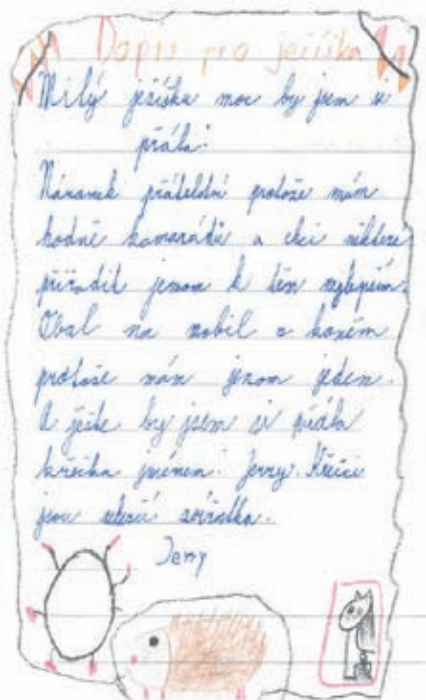 Dopis pro ježíška
Milý ježíšku moc by jsem si
přála:
Náramek přátelství protože mám
hodně kamarádů a chci některé
přiřadit jenom k těm nejlepším.
Obal na mobil s koněm
protože mám jenom jeden.
A ješte by jsem si přála
křečka jménem: Jerry. Křečci
jsou zvířátka.